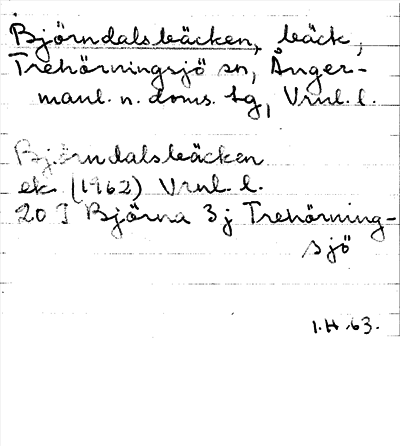 Björndalsbäcken, bäck,
Trehörningsjö sn, Ånger-
manl. n. doms. tg, Vrnl. l.
Björndalsbäcken
ek. (1962) Vrnl. l.
20 I Björna 3j Trehörning-
sjö
1.H.63.